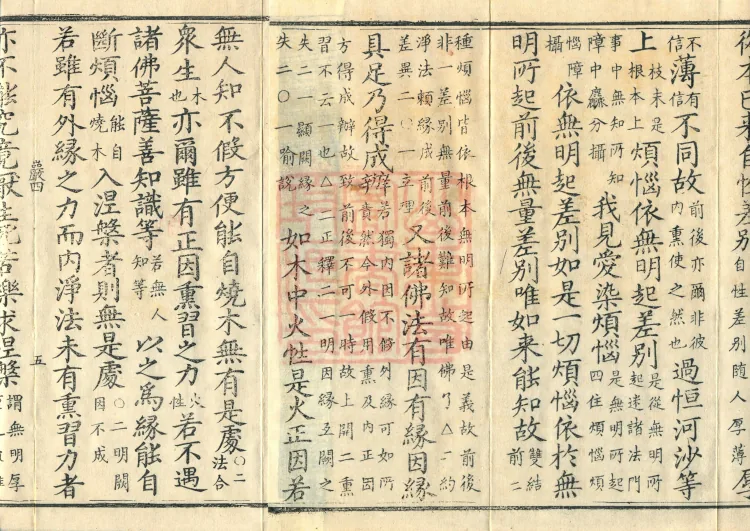 從本已來自性差別自性差別隨人厚薄厚
不信薄有信不同故前後亦爾非彼內熏使之然也過恒河沙等
上枝末是根本上煩惱依無明起差別是從無明所起迷諸法門
事中無知所知障中麤分攝我見愛染煩惱是無明所起四住煩惱
惱障攝依無明起差別如是一切煩惱依於無
明所起前後無量差別唯如来能知故雙結前二
種煩惱皆依根本無明所起由是義故前後
非一差別無量前後難知故唯佛了△二約
淨法賴緣成前後差異二〇一立理又諸佛法有因有緣因緣
具足乃得成辦若獨內因不修外緣可如所責然今外假用熏及內正因
方得成辦故致前後不可一時故上開二熏
習不云一也△二正釋二一明因緣互闕之
失二一顯闕緣之失二〇一喻說如木中火性是火正因若
無人知不假方便能自燒木無有是處〇二法合
衆生木也亦爾雖有正因熏習之力火性若不遇
諸佛菩薩善知識等若無人知等以之爲緣能自
斷煩惱能自燒木入涅槃者則無是處〇二明闕因不成
若雖有外緣之力而內淨法未有熏習力者
嚴四
五
亦不能究竟厭生死苦樂求涅槃謂無明厚